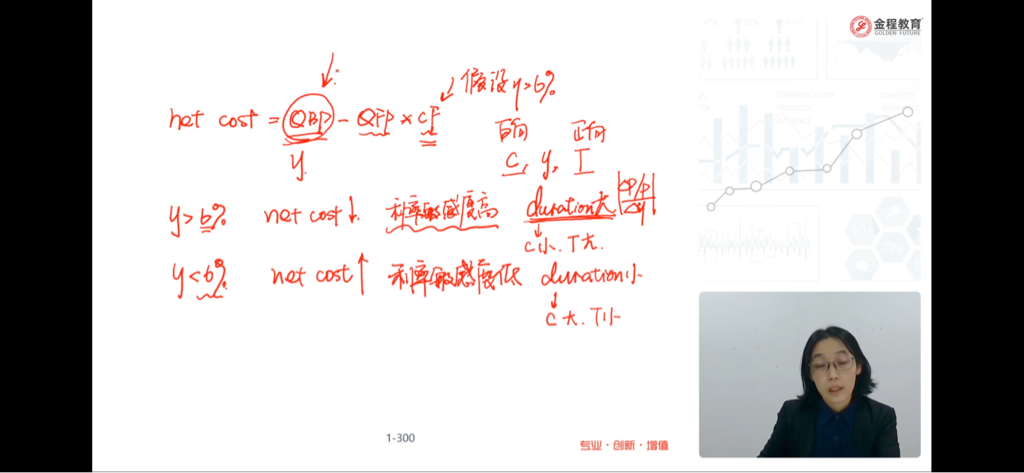 金程教育
GOLDEN FUTURE
假设 y=6%
net cost = QBP - QFP × CF
反向 正向
y.
C, y, T
y>6% net cost↓ 利率敏感度高 duration大 |ΔP/P/Δy|
C小. T大.
y<6% net cost↑ 利率敏感度低 duration小
C大. T小
1-300
专业·创新·增值